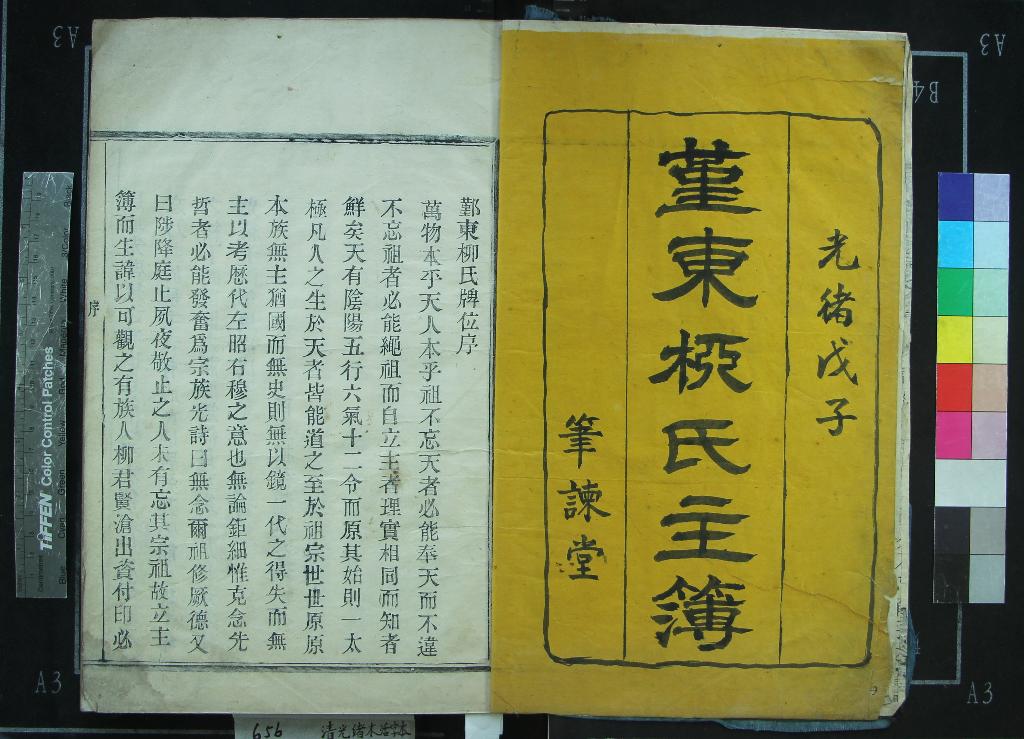 光緒戊子
堇東桺氏主簿
筆諫堂
鄞東柳氏牌位序
萬物本乎天人本乎祖不忘天者必能奉天而不違
不忘祖者必能繩祖而自立主者理實相同而知者
鮮矣天有陰陽五行六氣十二令而原其始則一太
極凡人之生於天者皆能道之至於祖宗世世原原
本族無主猶國而無史則無以鏡一代之得失而無
主以考歷代左昭右穆之意也無論鉅細惟克念先
哲者必能發奮爲宗族光詩曰無念爾祖修厥德又
曰陟降庭止夙夜敬止之人未有忘其宗祖故立主
簿而生諱以可觀之有族人柳君賢滄出資付印必
序
TIFFEN Color Control Patches
A3
A3
B4
A3
A3
656 清光緒木活字本